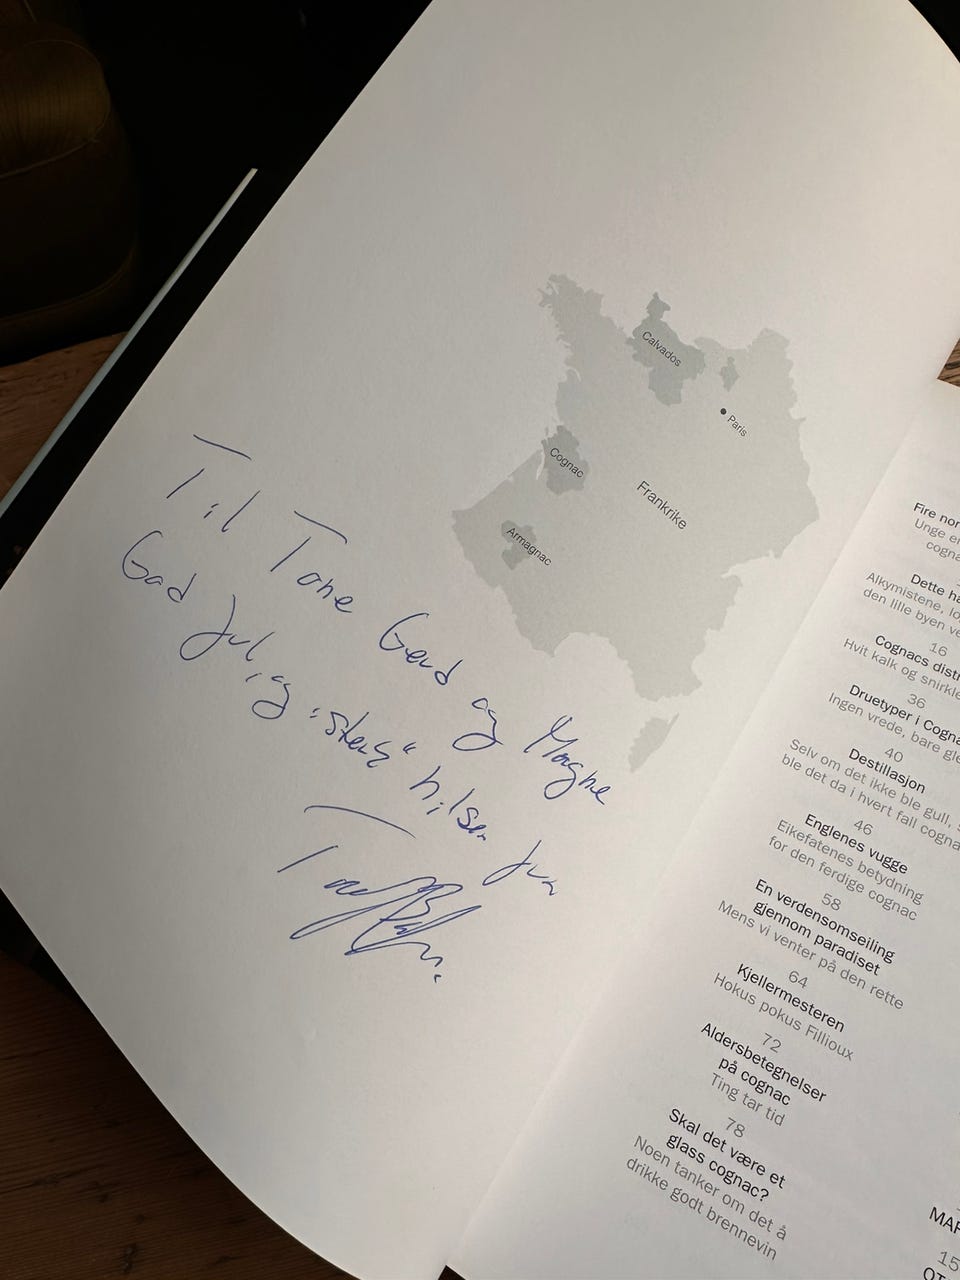 Calvados
Paris
Cognac
Frankrike
Armagnac
Til Tone Gerd og Magne
God Jul, og "sterk" hilsen fra
Fire nor
Unge er
cogna
Dette ha
Alkymistene, lo
den lille byen ve
16
Cognacs distr
Hvit kalk og snirkle
36
Druetyper i Cogna
Ingen vrede, bare gle
40
Destillasjon
Selv om det ikke ble gull, s
ble det da i hvert fall cogna
46
Englenes vugge
Eikefatenes betydning
for den ferdige cognac
58
En verdensomseiling
gjennom paradiset
Mens vi venter på den rette
64
Kjellermesteren
Hokus pokus Fillioux
72
Aldersbetegnelser
på cognac
Ting tar tid
78
Skal det være et
glass cognac?
Noen tanker om det å
drikke godt brennevin
MAR
15